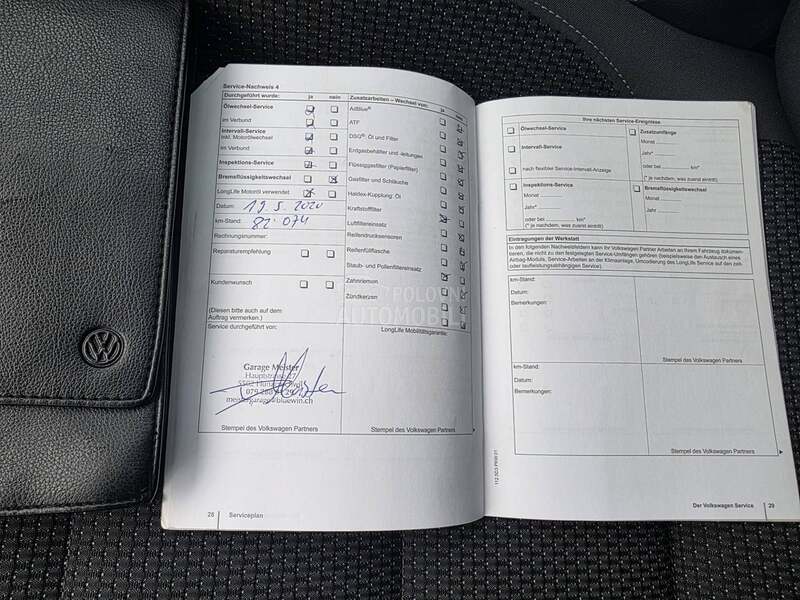 Service-Nachweis 4
Durchgeführt wurde: ja nein
Ölwechsel-Service
im Verbund
Intervall-Service
inkl. Motorölwechsel
im Verbund
Inspektions-Service
Bremsflüssigkeitswechsel
LongLife Motoröl verwendet
Datum: 19 5. 2020
km-Stand: 82.074
Rechnungsnummer:
Reparaturempfehlung
Kundenwunsch
(Diesen bitte auch auf dem
Auftrag vermerken.)
Service durchgeführt von:
Garage Meister
Hauptstrasse 27
meistergarage@bluewin.ch
Stempel des Volkswagen Partners
Zusatzarbeiten – Wechsel von: ja nein
AdBlue®
ATF
DSG®: Öl und Filter
Erdgasbehälter und -leitungen
Flüssiggasfilter (Papierfilter)
Gasfilter und Schläuche
Haldex-Kupplung: Öl
Kraftstofffilter
Luftfiltereinsatz
Reifendrucksensoren
Reifenfüllflasche
Staub- und Pollenfiltereinsatz
Zahnriemen
Zündkerzen
POLOVNI
AUTOMOBILI
LongLife Mobilitätsgarantie:
Stempel des Volkswagen Partners
28 Serviceplan
Ihre nächsten Service-Ereignisse
Ölwechsel-Service
Intervall-Service
nach flexibler Service-Intervall-Anzeige
Zusatzumfänge
Monat
Jahr*
oder bei km*
(* je nachdem, was zuerst eintritt)
Inspektions-Service
Monat
Jahr*
oder bei km*
(* je nachdem, was zuerst eintritt)
Bremsflüssigkeitswechsel
Monat
Jahr
Eintragungen der Werkstatt
In den folgenden Nachweisfeldern kann Ihr Volkswagen Partner Arbeiten an Ihrem Fahrzeug dokumen-
tieren, die nicht zu den festgelegten Service-Umfängen gehören (beispielsweise den Austausch eines
Airbag-Moduls, Service-Arbeiten an der Klimaanlage, Umcodierung des LongLife Service auf den zeit-
oder laufleistungsabhängigen Service).
km-Stand:
Datum:
Bemerkungen:
Stempel des Volkswagen Partners
km-Stand:
Datum:
Bemerkungen:
Stempel des Volkswagen Partners
Der Volkswagen Service 29